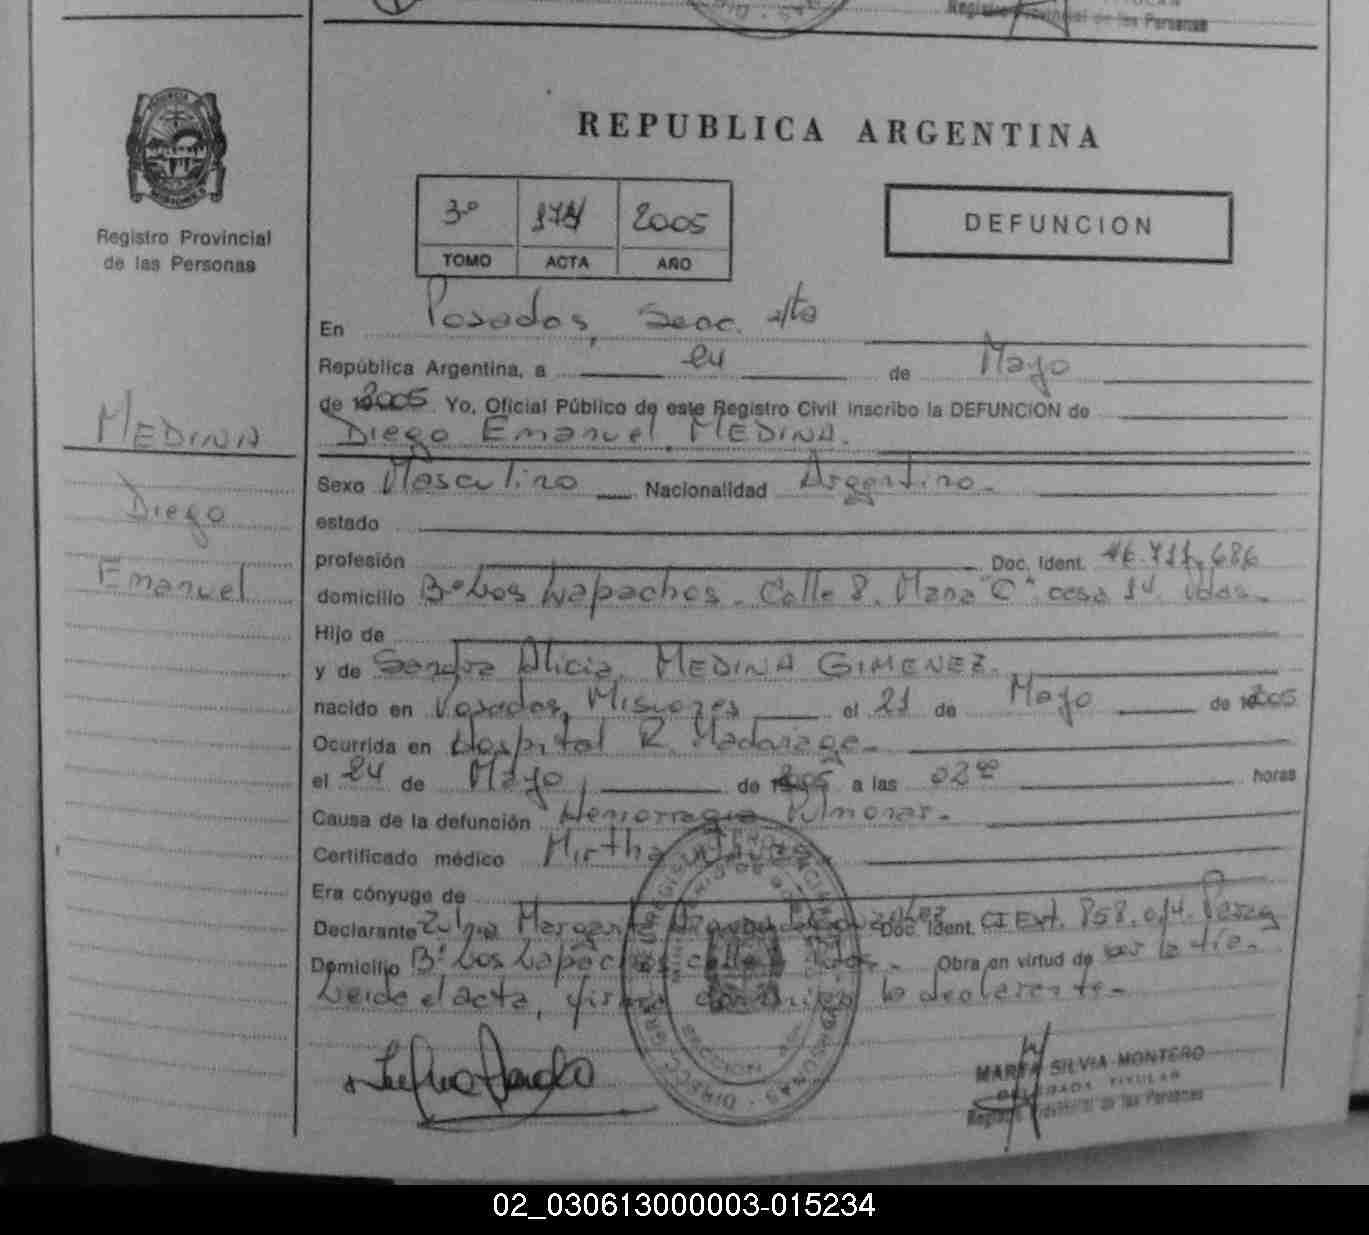 Registro Provincial de las Personas
REPUBLICA ARGENTINA
Registro Provincial
de las Personas
3º 2005
TOMO ACTA AÑO
DEFUNCION
En Posadas, Secc. 4ta
República Argentina, a 24 de Mayo
de 2005. Yo, Oficial Público de este Registro Civil inscribo la DEFUNCION de
Diego Emanuel MEDINA.
MEDINA
Diego
Emanuel
Sexo Masculino Nacionalidad Argentino.
estado
profesión Doc. Ident. 46.711.686
domicilio Bº Los Lapachos. Calle 8. Mana "C" casa 14. Pdas.
Hijo de
y de Sandra Alicia MEDINA GIMENEZ.
nacido en Posadas, Misiones el 21 de Mayo de 2005
Ocurrida en Hospital R. Madariaga.
el 24 de Mayo de 2005 a las 02⁰⁰ horas
Causa de la defunción Hemorragia Pulmonar.
Certificado médico Mirtha
Era cónyuge de
Declarante Zulma Margarita Doc. Ident. CI Ext. 858.014.
Domicilio Bº Los Lapachos calle 8 Pdas. Obra en virtud de ser la tía.
Leída el acta, firma conmigo la declarante.
MARTA SILVIA MONTERO
DELEGADA TITULAR
Registro Provincial de las Personas
02_030613000003-015234